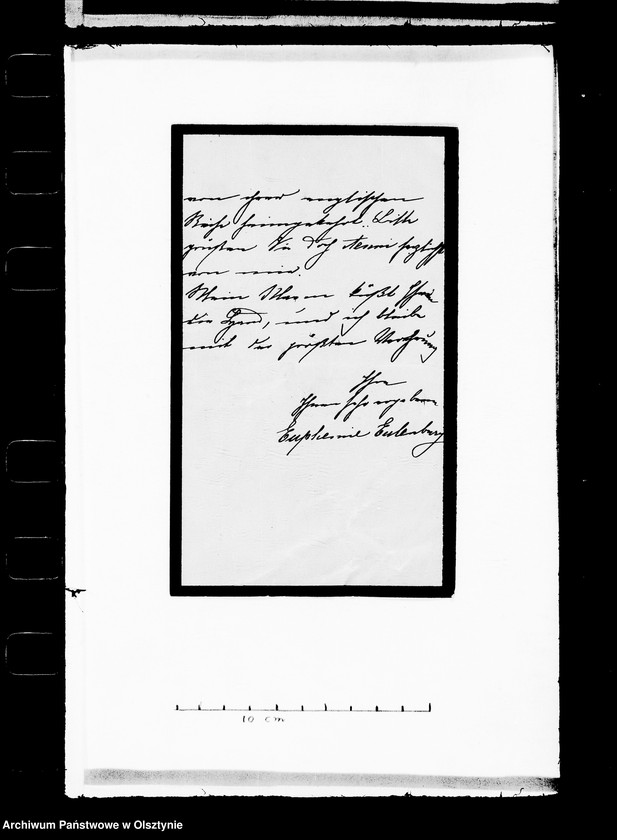 von ihrer englischen
Reise heimgekehrt. Bitte
grüßen Sie doch
von mir.
Mein Mann küßt Ihnen
die Hand, und ich bleibe
mit der größten Verehrung
Ihre
Ihnen sehr ergebene
Euphemie Eulenburg
10 cm
Archiwum Państwowe w Olsztynie